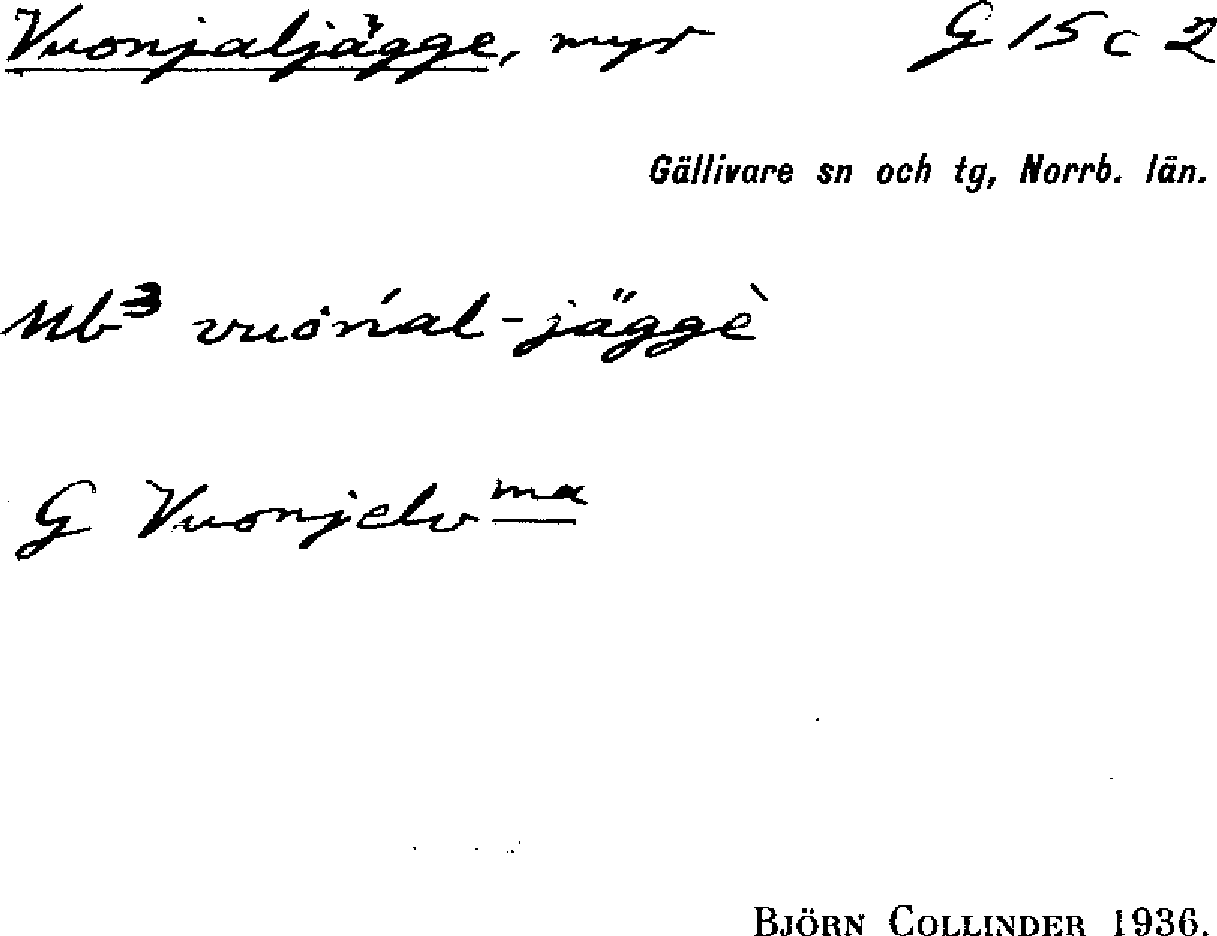 Vuonjaljägge, myr G 15 c 2
Gällivare sn och tg, Norrb. län.
Nb³ vuȯńal-jäggè
G Vuonjelv ma
BJÖRN COLLINDER 1936.